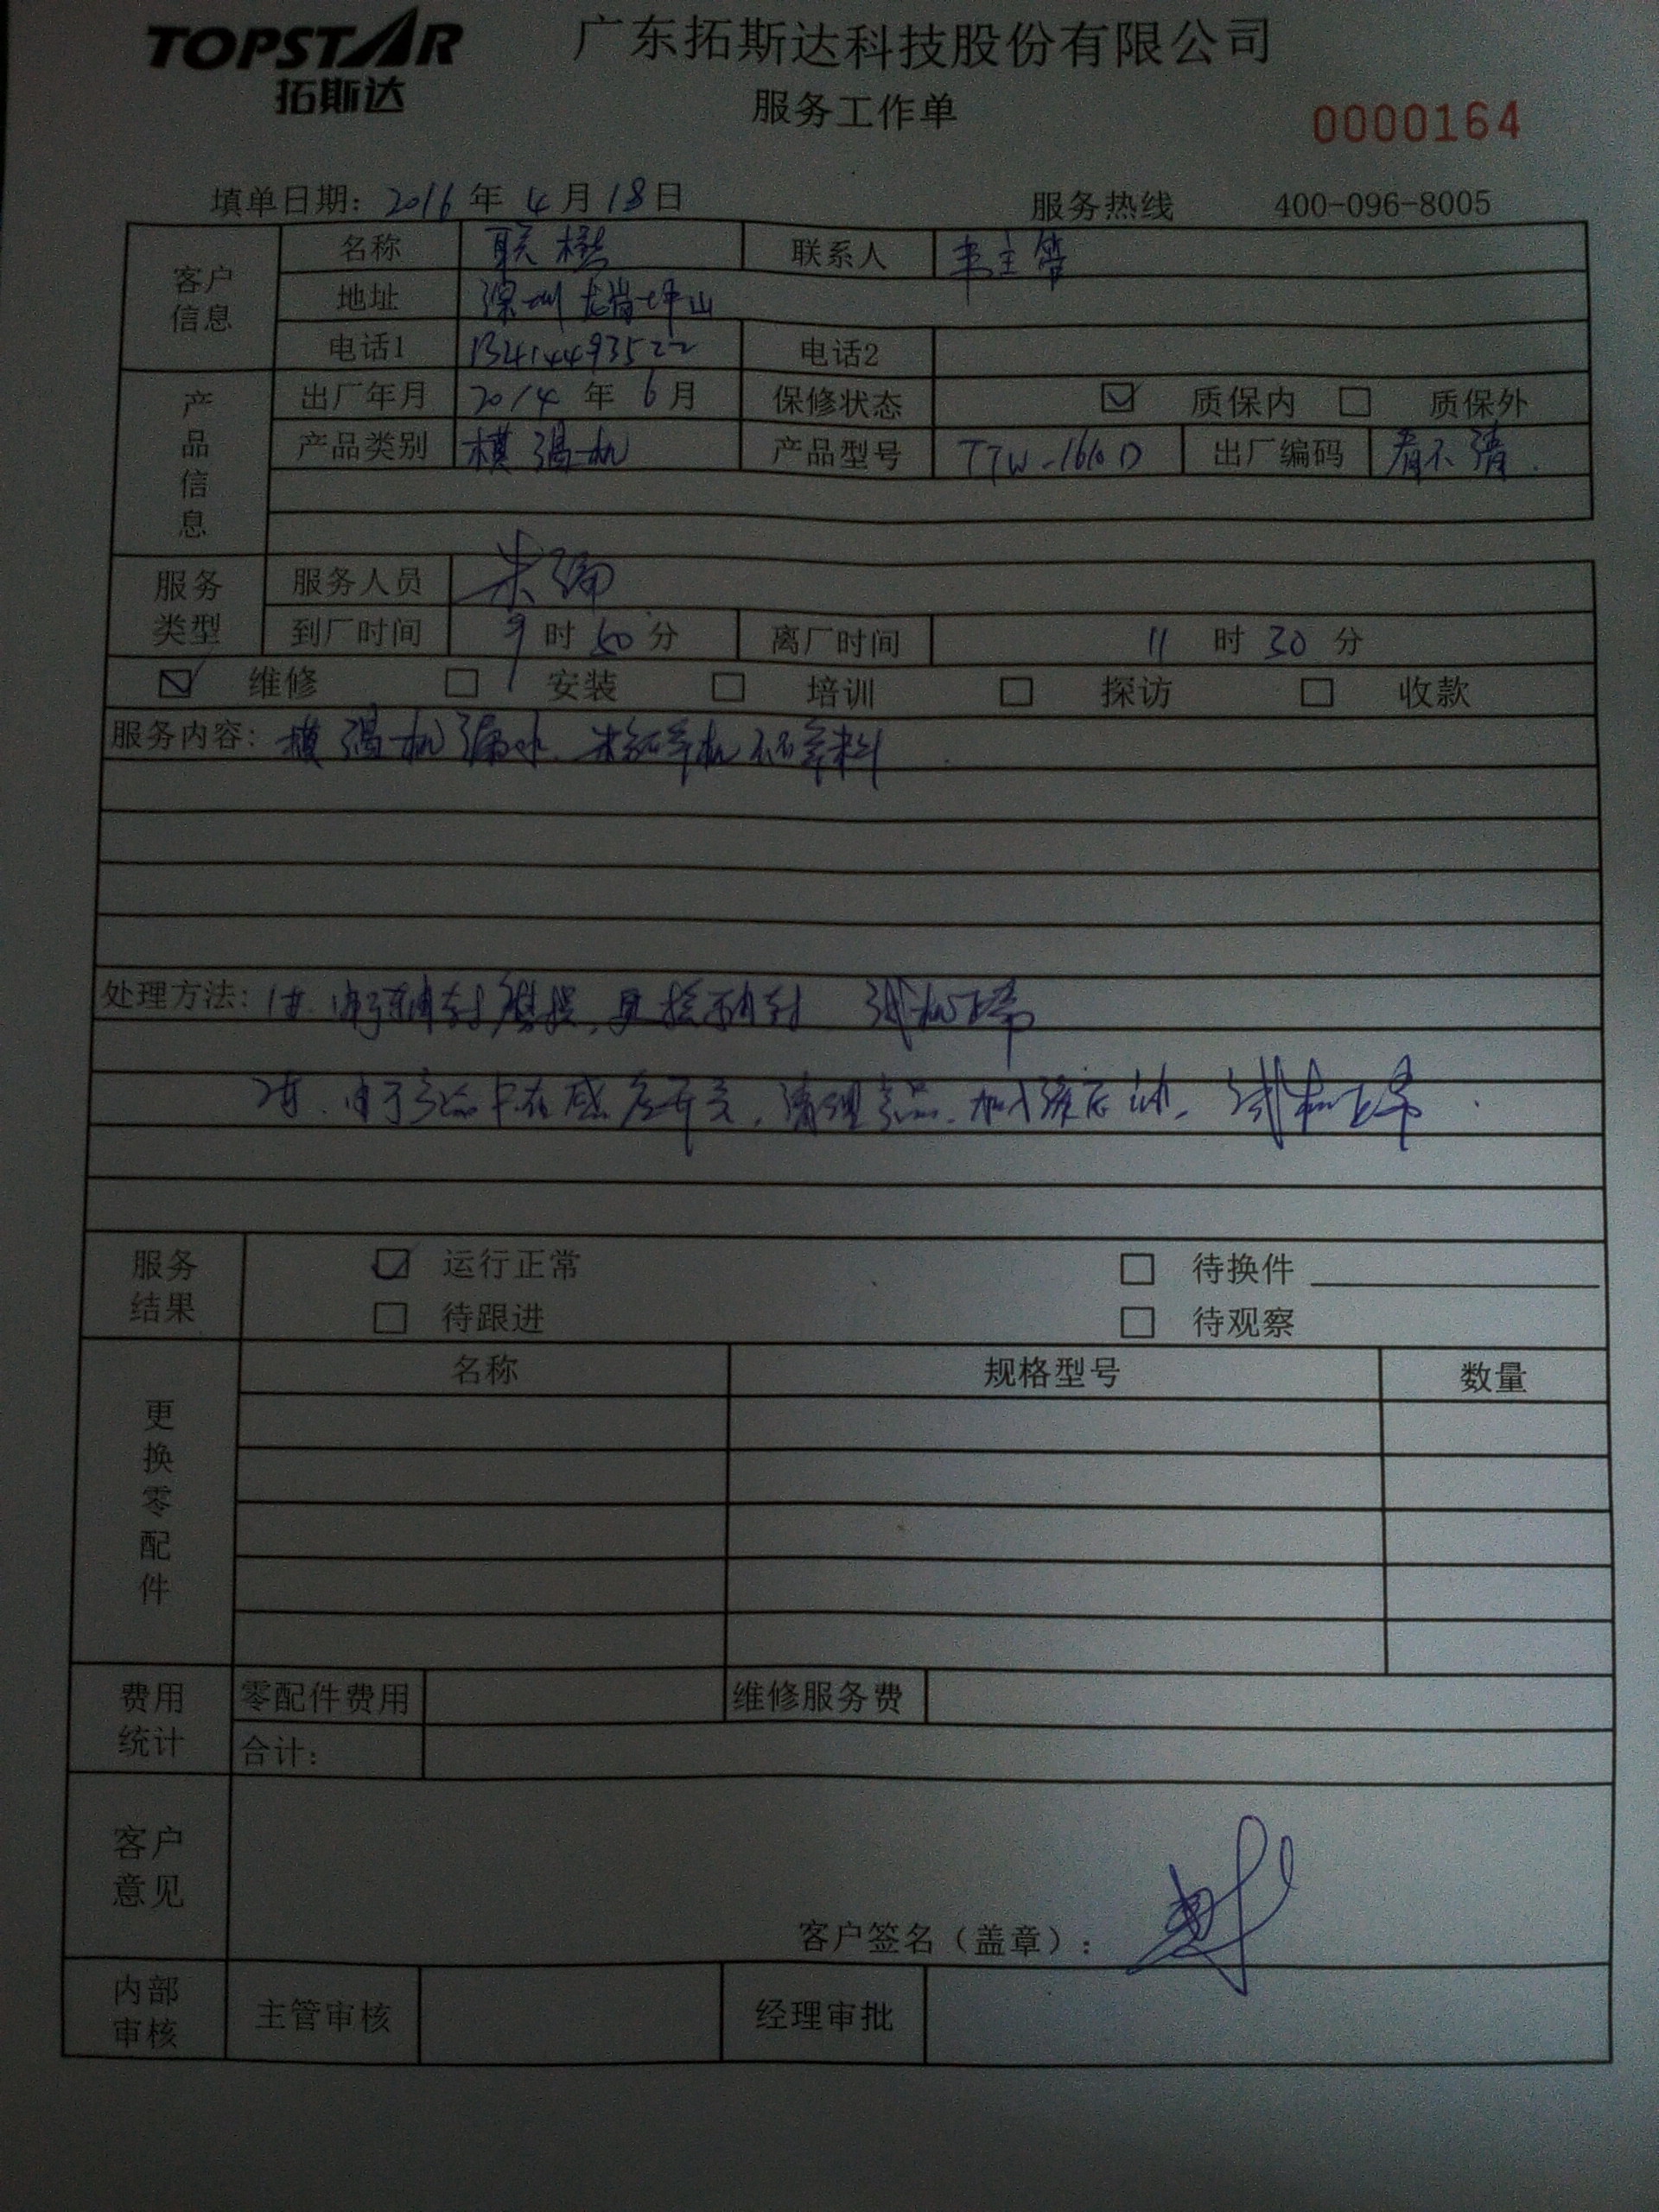 TOPSTAR 广东拓斯达科技股份有限公司
拓斯达 服务工作单
0000164
填单日期：2016年4月18日 服务热线 400-096-8005
客户信息 名称 联 联系人 韦主管
地址 深圳龙岗坪山
电话1 13414493522 电话2
产品信息 出厂年月 2014年6月 保修状态 ☑ 质保内 □ 质保外
产品类别 模温机 产品型号 TTW-1610D 出厂编码 看不清.
服务类型 服务人员 朱
到厂时间 9时50分 离厂时间 11时30分
☑ 维修 □ 安装 □ 培训 □ 探访 □ 收款
服务内容：模温机漏水.
处理方法：1# 由于轴封磨损,更换轴封 试机正常
2#.由于 卡在感应开关,清理 .加 .试机正常.
服务结果 ☑ 运行正常 □ 待换件
□ 待跟进 □ 待观察
更换零配件 名称 规格型号 数量
费用统计 零配件费用 维修服务费
合计：
客户意见
客户签名（盖章）：
内部审核 主管审核 经理审批